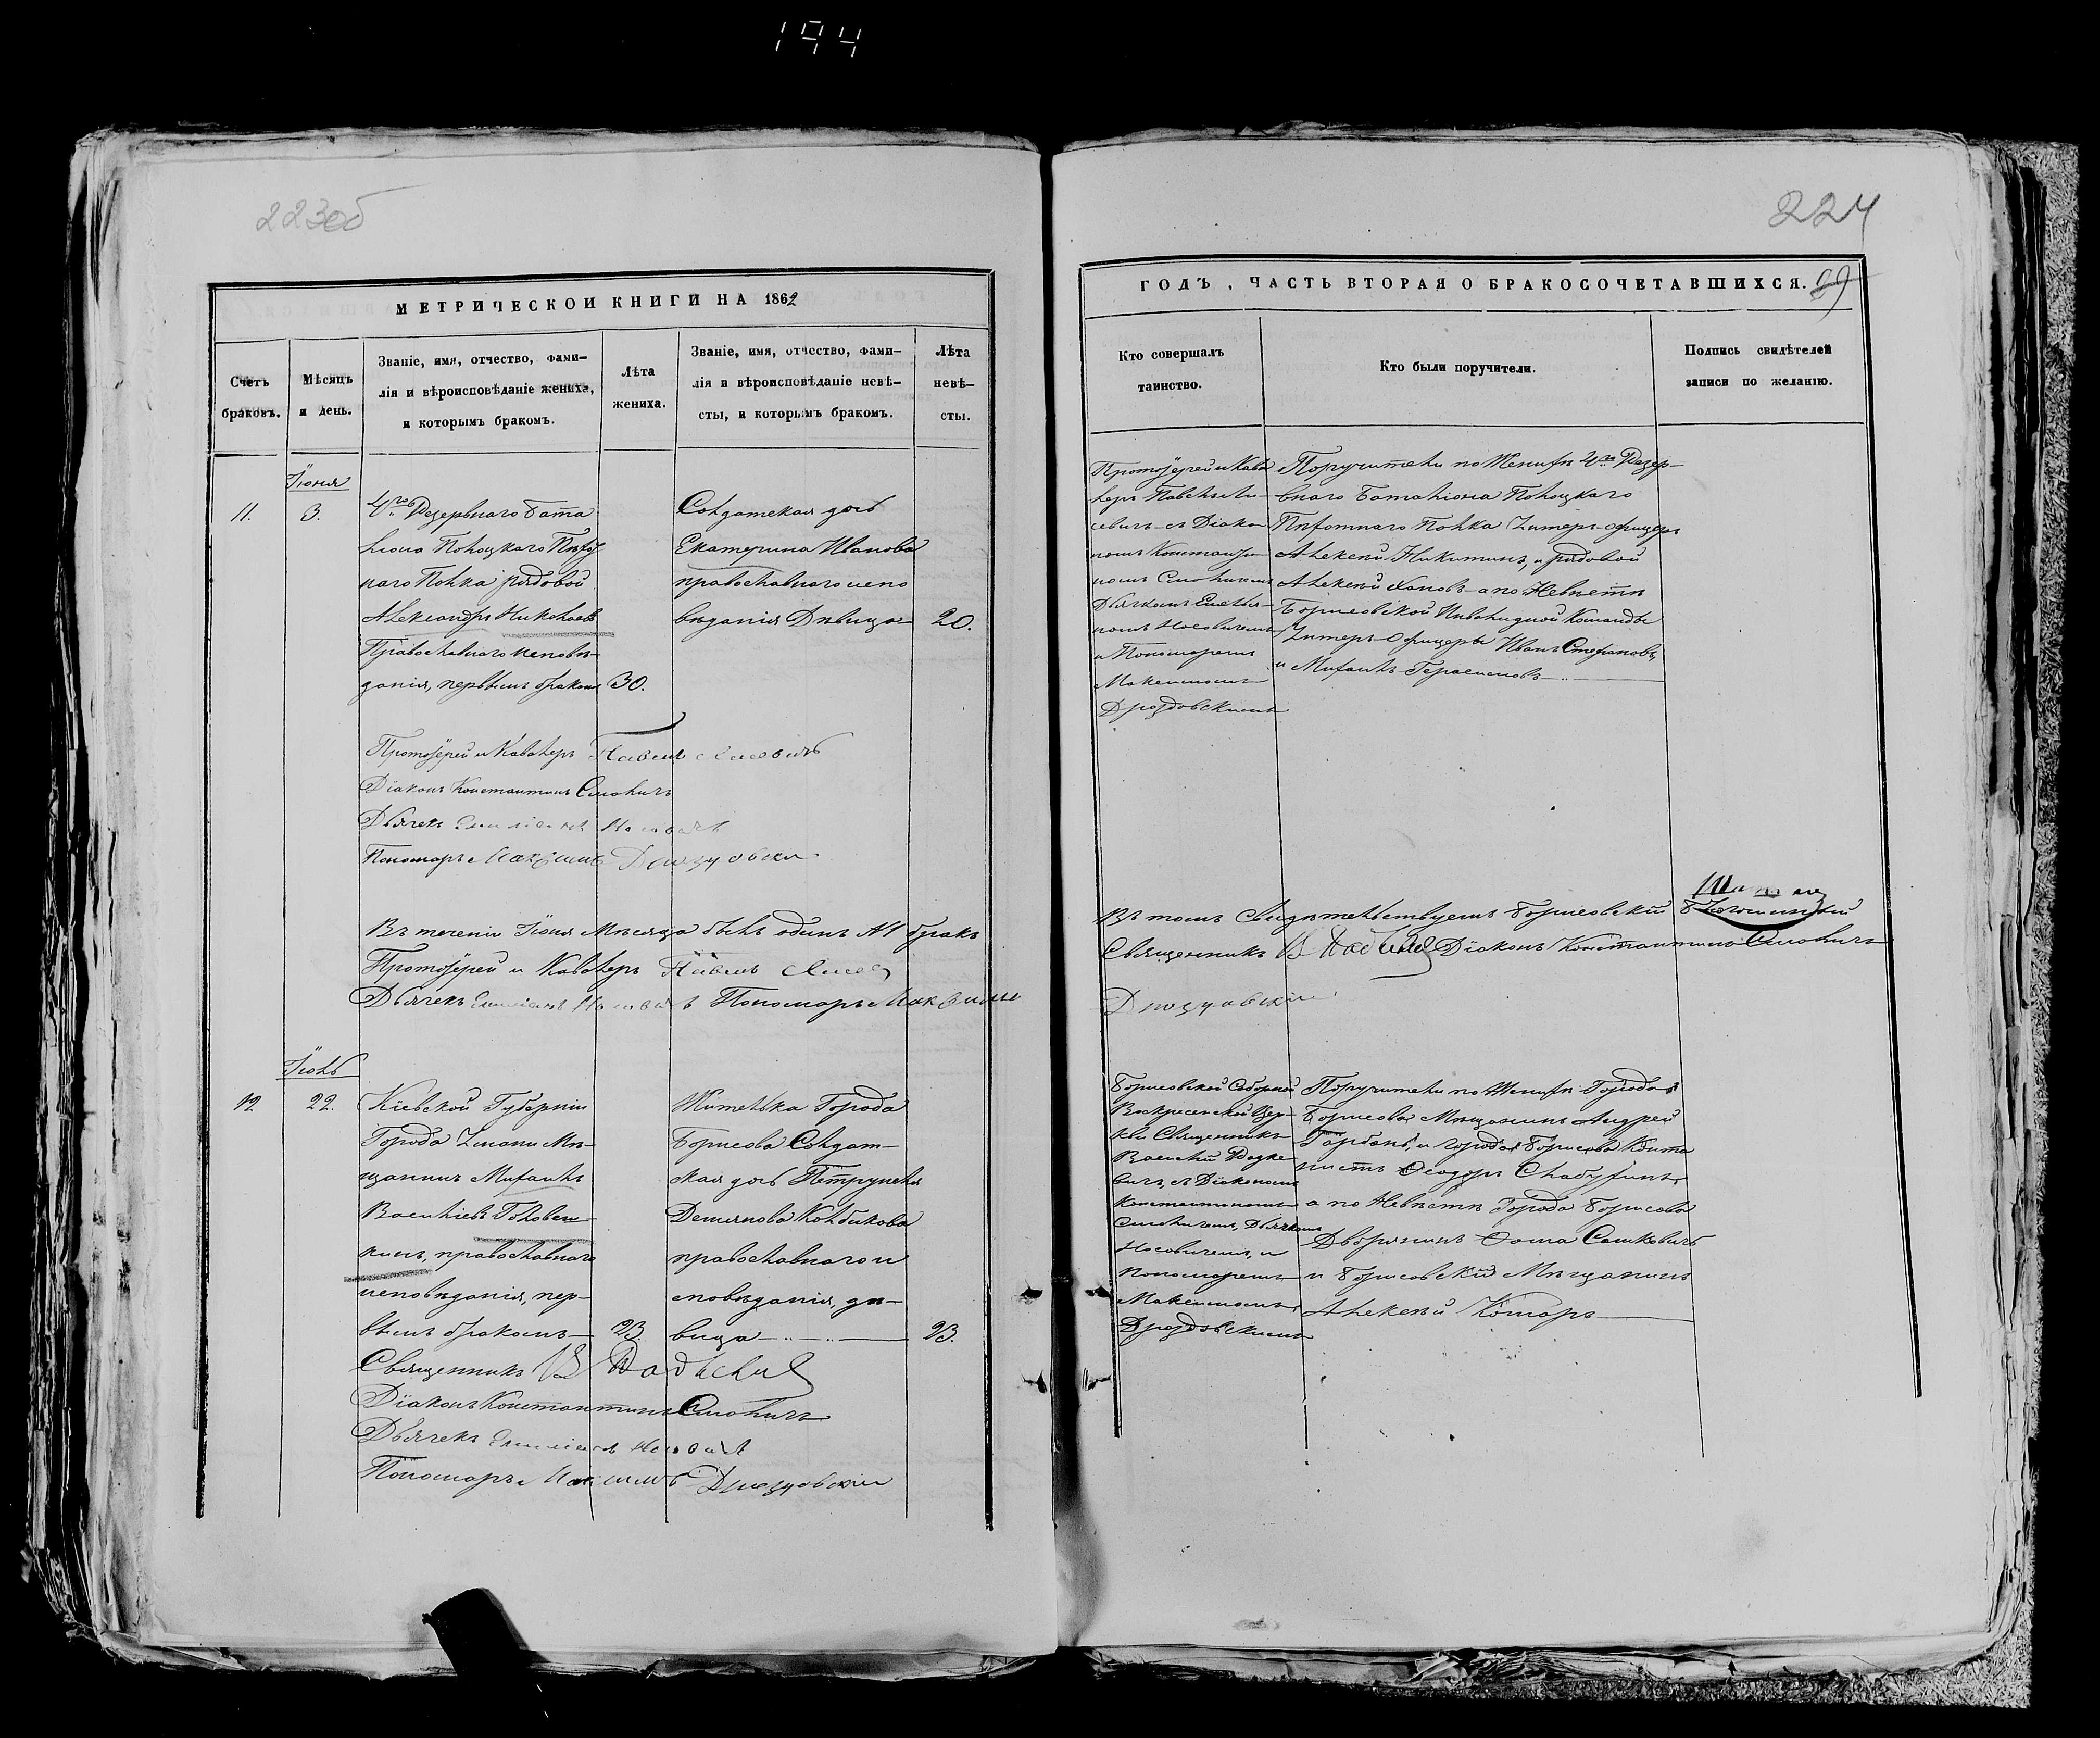 194
223об
МЕТРИЧЕСКОЙ КНИГИ НА 1862
Счетъ браковъ.
Мѣсяцъ и день.
Званіе, имя, отчество, фами-
лія и вѣроисповѣданіе жениха,
и которымъ бракомъ.
Лѣта жениха.
Званіе, имя, отчество, фами-
лія и вѣроисповѣданіе невѣ-
сты, и которымъ бракомъ.
Лѣта невѣ-
сты.
Іюня
11. 3.
4го Резервнаго Бата
ліона Полоцкаго Пѣхот
наго Полка рядовой
Александръ Николаевъ
Православнаго исповѣ-
данія, первымъ бракомъ 30.
Солдатская дочь
Екатерина Иванова
православнаго испо
вѣданія Дѣвица 20.
Протоіерей и Кавалеръ Павелъ Лисевичъ
Діаконъ Константинъ Смоличъ
Дьячекъ Емиліанъ Носовичъ
Пономарь Максимъ Дроздовскій
Въ теченіи Іюня Мѣсяца былъ одинъ №1 бракъ
Протоіерей и Кавалеръ Павелъ
Дьячекъ Емиліанъ Носовичъ Пономарь Максимъ
Іюль
12 22.
Кіевской Губерніи
Города Умани Мѣ-
щанинъ Михаилъ
Васильевъ Головеш-
кинъ, православнаго
исповѣданія, пер-
вымъ бракомъ 23.
Жителька Города
Борисова Солдат-
ская дочь Петрунеля
Демянова Колбикова
православнаго и
сповѣданія, дѣ-
вица 23.
Священникъ В
Діаконъ Константинъ Смоличъ
Дьячекъ Емиліанъ Носовичъ
Пономарь Максимъ Дроздовскій
224
ГОДЪ, ЧАСТЬ ВТОРАЯ О БРАКОСОЧЕТАВШИХСЯ.
Кто совершалъ
таинство.
Кто были поручители.
Подпись свидѣтелей
записи по желанію.
Протоіерей и Кава
леръ Павелъ Ли-
севичъ съ Діако
номъ Константи
номъ Смоличемъ
Дьячкомъ Емелья-
номъ Носовичемъ
и Пономаремъ
Максимомъ
Дроздовскимъ
Поручители по Женихѣ 4го Резер-
внаго Баталіона Полоцкаго
Пѣхотнаго Полка Унтеръ-офицеръ
Алексѣй Никитинъ, и рядовой
Алексѣй а по Невѣстѣ
Борисовской Инвалидной Команды
Унтеръ-Офицеры Иванъ Стефановъ,
и Михаилъ Герасимовъ
Въ томъ свидѣтельствуетъ Борисовскій Благочинный
Священникъ Діаконъ Константинъ Смоличъ
Дроздовскій
Борисовской Соборной
Воскресенской Цер-
кви Священникъ
Василій
вичъ, съ Діакономъ
Константиномъ
Смоличемъ, Дьячкомъ
Носовичемъ, и
Пономаремъ
Максимомъ
Дроздовскимъ
Поручители по Женихѣ Города
Борисова Мѣщанинъ Андрей
Горбачь, и города Борисова Канто
нистъ Ѳеодоръ
а по Невѣстѣ Города Борисова
Дворянинъ Ѳома Сашковичъ
и Борисовскій Мѣщанинъ
Алексѣй Комаръ